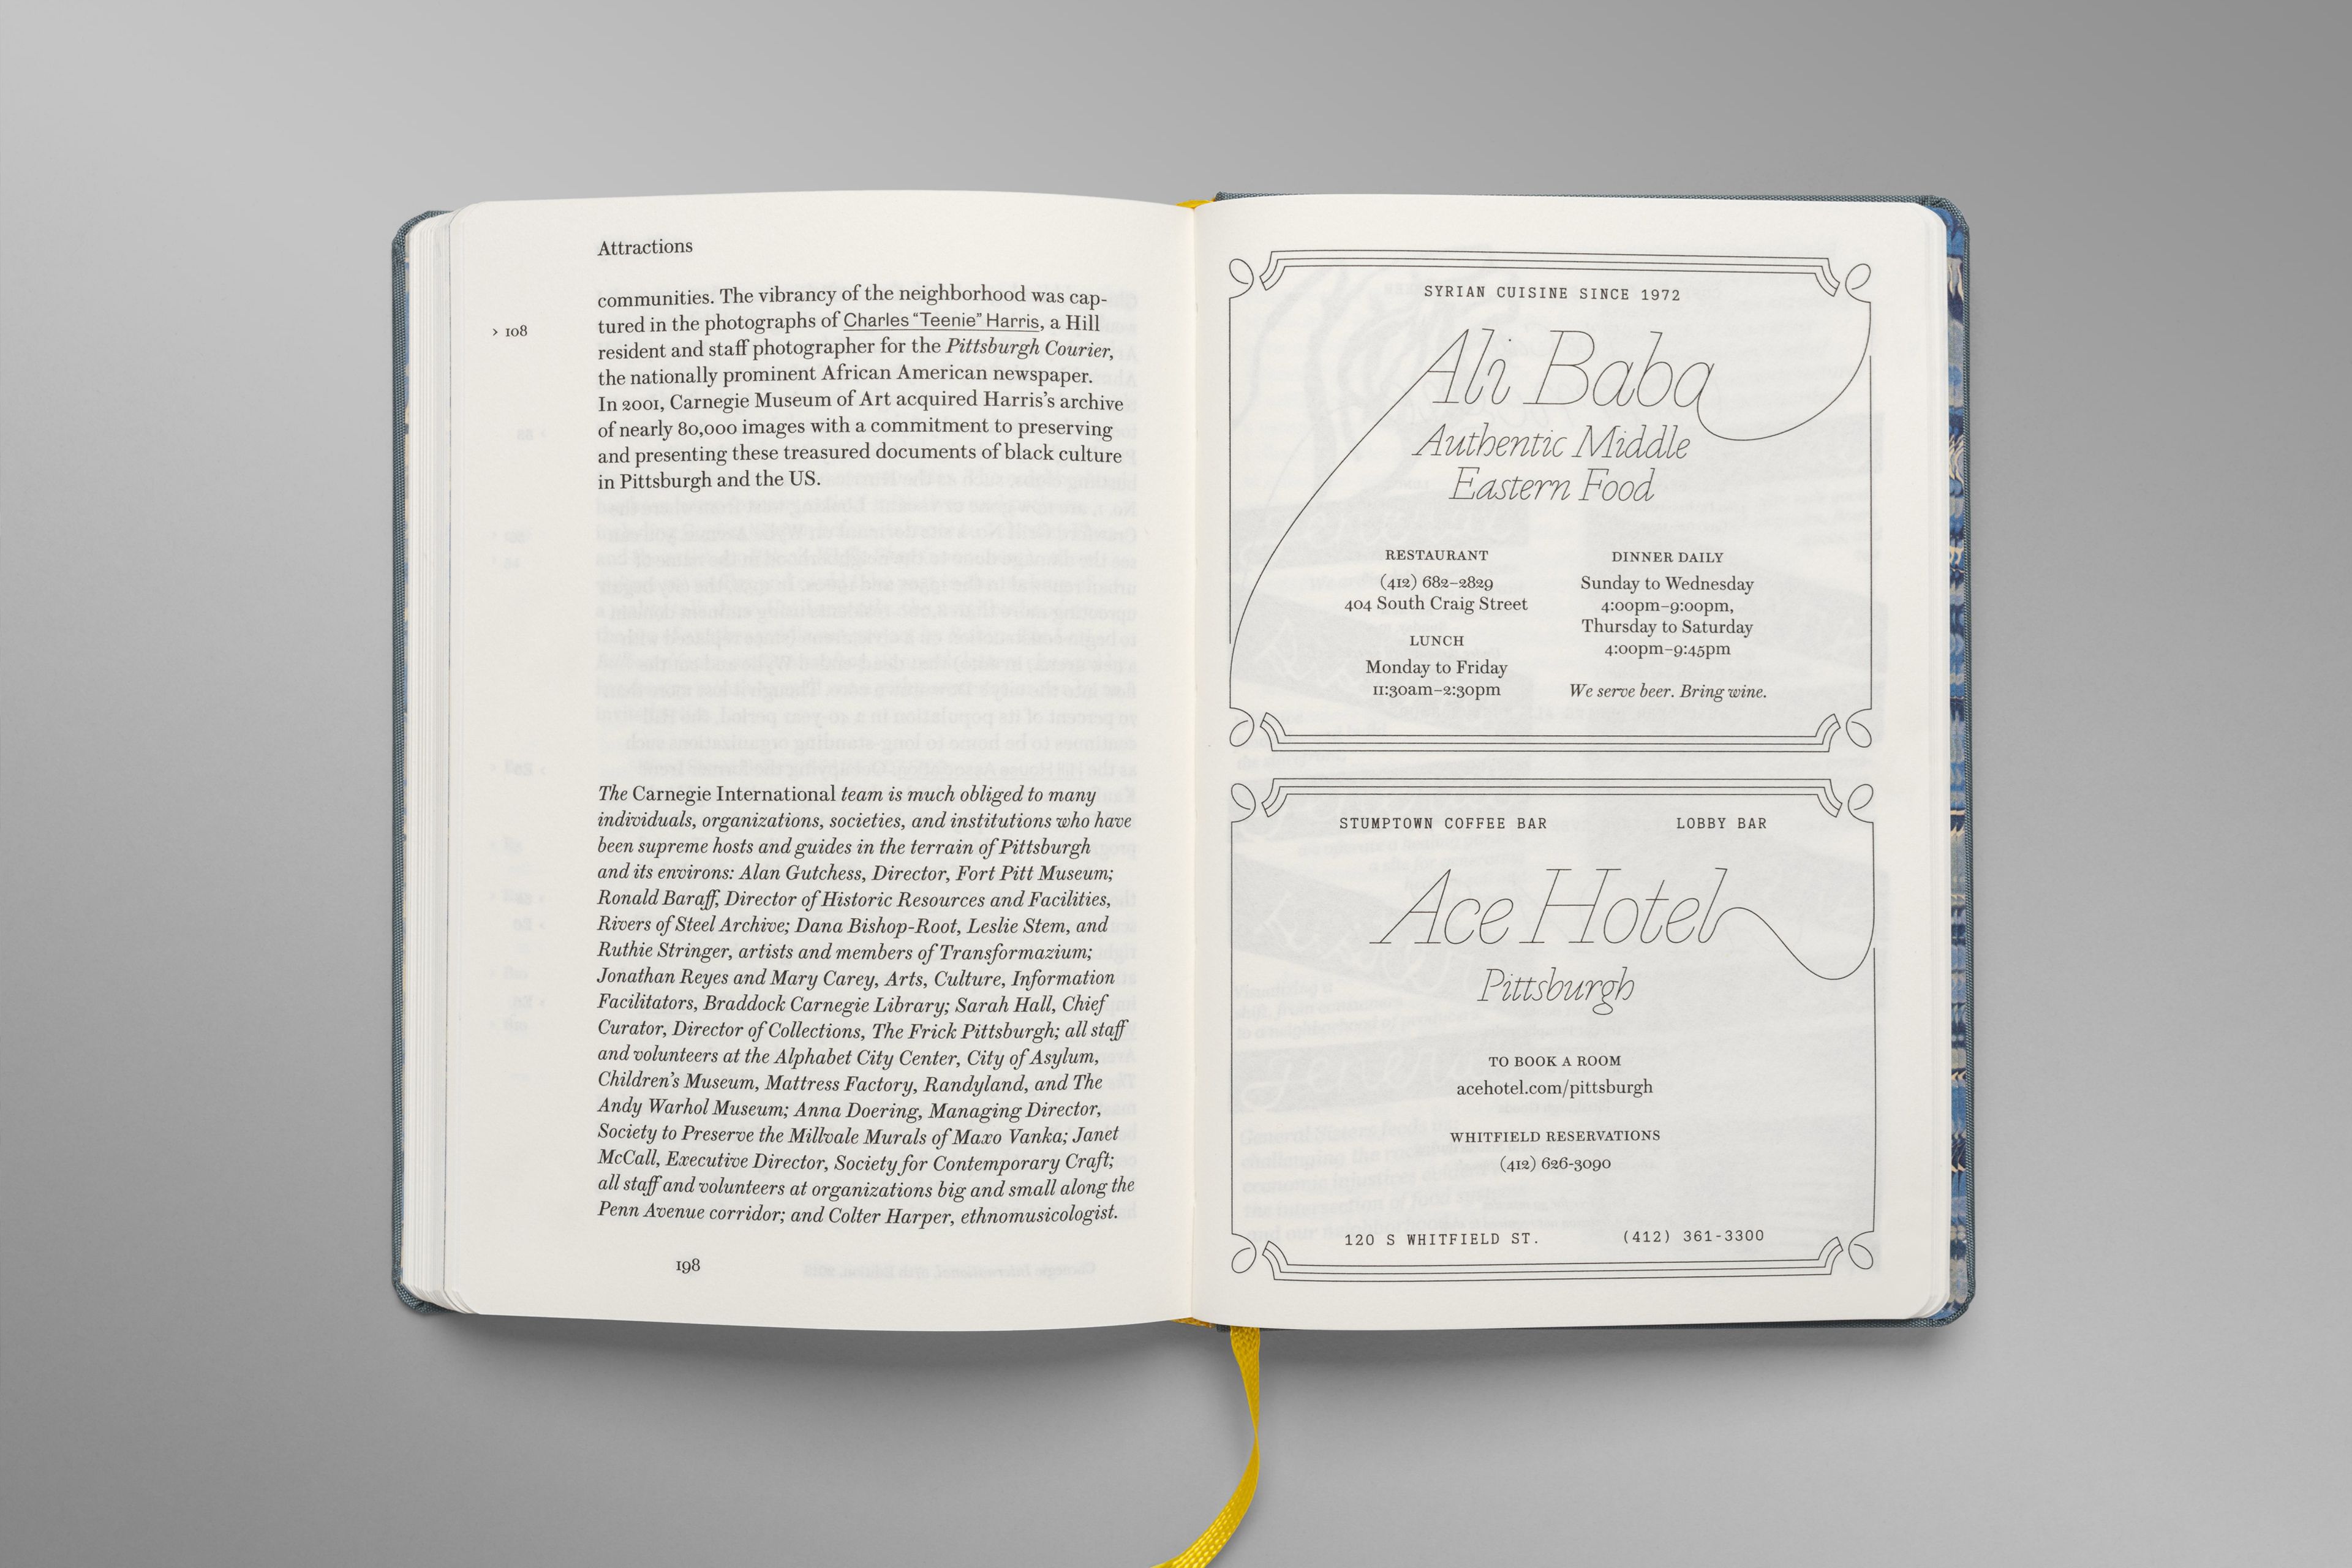 Attractions
communities. The vibrancy of the neighborhood was cap-
› 108
tured in the photographs of Charles “Teenie” Harris, a Hill
resident and staff photographer for the Pittsburgh Courier,
the nationally prominent African American newspaper.
In 2001, Carnegie Museum of Art acquired Harris’s archive
of nearly 80,000 images with a commitment to preserving
and presenting these treasured documents of black culture
in Pittsburgh and the US.
The Carnegie International team is much obliged to many
individuals, organizations, societies, and institutions who have
been supreme hosts and guides in the terrain of Pittsburgh
and its environs: Alan Gutchess, Director, Fort Pitt Museum;
Ronald Baraff, Director of Historic Resources and Facilities,
Rivers of Steel Archive; Dana Bishop-Root, Leslie Stem, and
Ruthie Stringer, artists and members of Transformazium;
Jonathan Reyes and Mary Carey, Arts, Culture, Information
Facilitators, Braddock Carnegie Library; Sarah Hall, Chief
Curator, Director of Collections, The Frick Pittsburgh; all staff
and volunteers at the Alphabet City Center, City of Asylum,
Children’s Museum, Mattress Factory, Randyland, and The
Andy Warhol Museum; Anna Doering, Managing Director,
Society to Preserve the Millvale Murals of Maxo Vanka; Janet
McCall, Executive Director, Society for Contemporary Craft;
all staff and volunteers at organizations big and small along the
Penn Avenue corridor; and Colter Harper, ethnomusicologist.
198
SYRIAN CUISINE SINCE 1972
Ali Baba
Authentic Middle
Eastern Food
RESTAURANT
(412) 682–2829
404 South Craig Street
LUNCH
Monday to Friday
11:30am–2:30pm
DINNER DAILY
Sunday to Wednesday
4:00pm–9:00pm,
Thursday to Saturday
4:00pm–9:45pm
We serve beer. Bring wine.
STUMPTOWN COFFEE BAR
LOBBY BAR
Ace Hotel
Pittsburgh
TO BOOK A ROOM
acehotel.com/pittsburgh
WHITFIELD RESERVATIONS
(412) 626-3090
120 S WHITFIELD ST.
(412) 361-3300